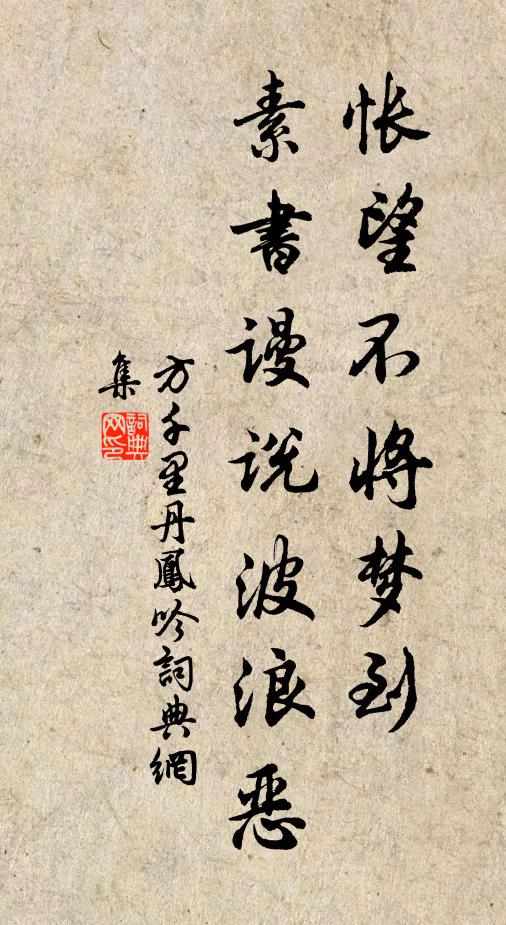 怅望不将梦到
素书谩说波浪恶
方千里丹鳳吟詞典網
集
詞典
网印